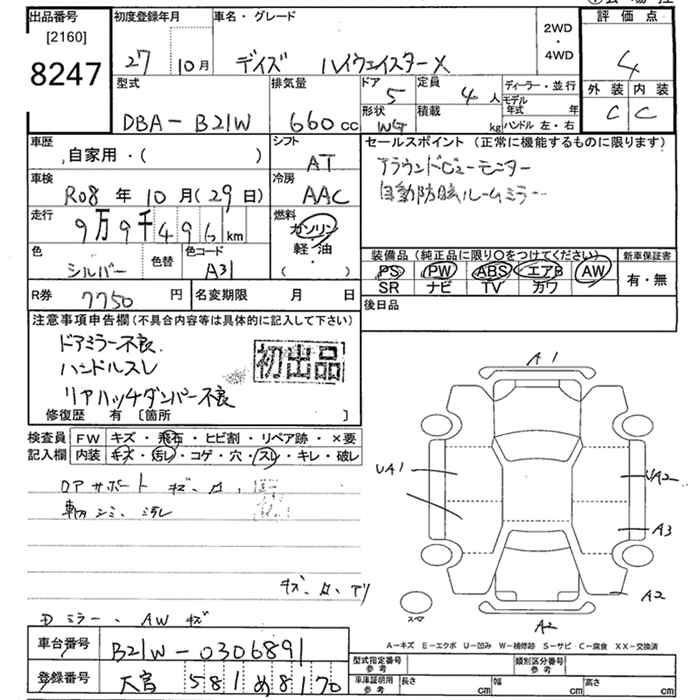 出品番号
[2160]
8247
初度登録年月
27 10月
車名・グレード
デイズ ハイウェイスターX
2WD
・
4WD
評価点
4
外装 内装
C C
型式
DBA-B21W
排気量
660cc
ドア
5
定員
4人
形状
WG
積載
kg
ディーラー・並行
モデル年式 年
ハンドル 左・右
車歴
自家用・( )
シフト
AT
セールスポイント (正常に機能するものに限ります)
アラウンドビューモニター
自動防眩ルームミラー
車検
R08年10月(29日)
冷房
AAC
走行
9万9千496km
燃料
ガソリン
軽・油
( ・ )
色
シルバー
色替
色コード
A31
装備品 (純正品に限り○をつけてください)
PS PW ABS エアB AW
SR ナビ TV カワ
新車保証書
有・無
R券 7750円
名変期限 月 日
後日品
注意事項申告欄(不具合内容等は具体的に記入して下さい)
ドアミラー不良
ハンドルスレ
リアハッチダンパー不良
初出品
修復歴 有 〔箇所 〕
検査員記入欄
FW キズ・飛石・ヒビ割・リペア跡・×要
内装 キズ・汚レ・コゲ・穴・スレ・キレ・破レ
シミ、汚レ
ミラー、AWキズ
A1
UA1
UA2
A3
A2
A2
スペア
A-キズ E-エクボ U-凹み W-補修跡 S-サビ C-腐食 XX-交換済
車台番号 B21W-0306891
登録番号 581 め 8170
型式指定番号 参考
類別区分番号 参考
車庫証明用 参考
長さ cm
幅 cm
高さ cm